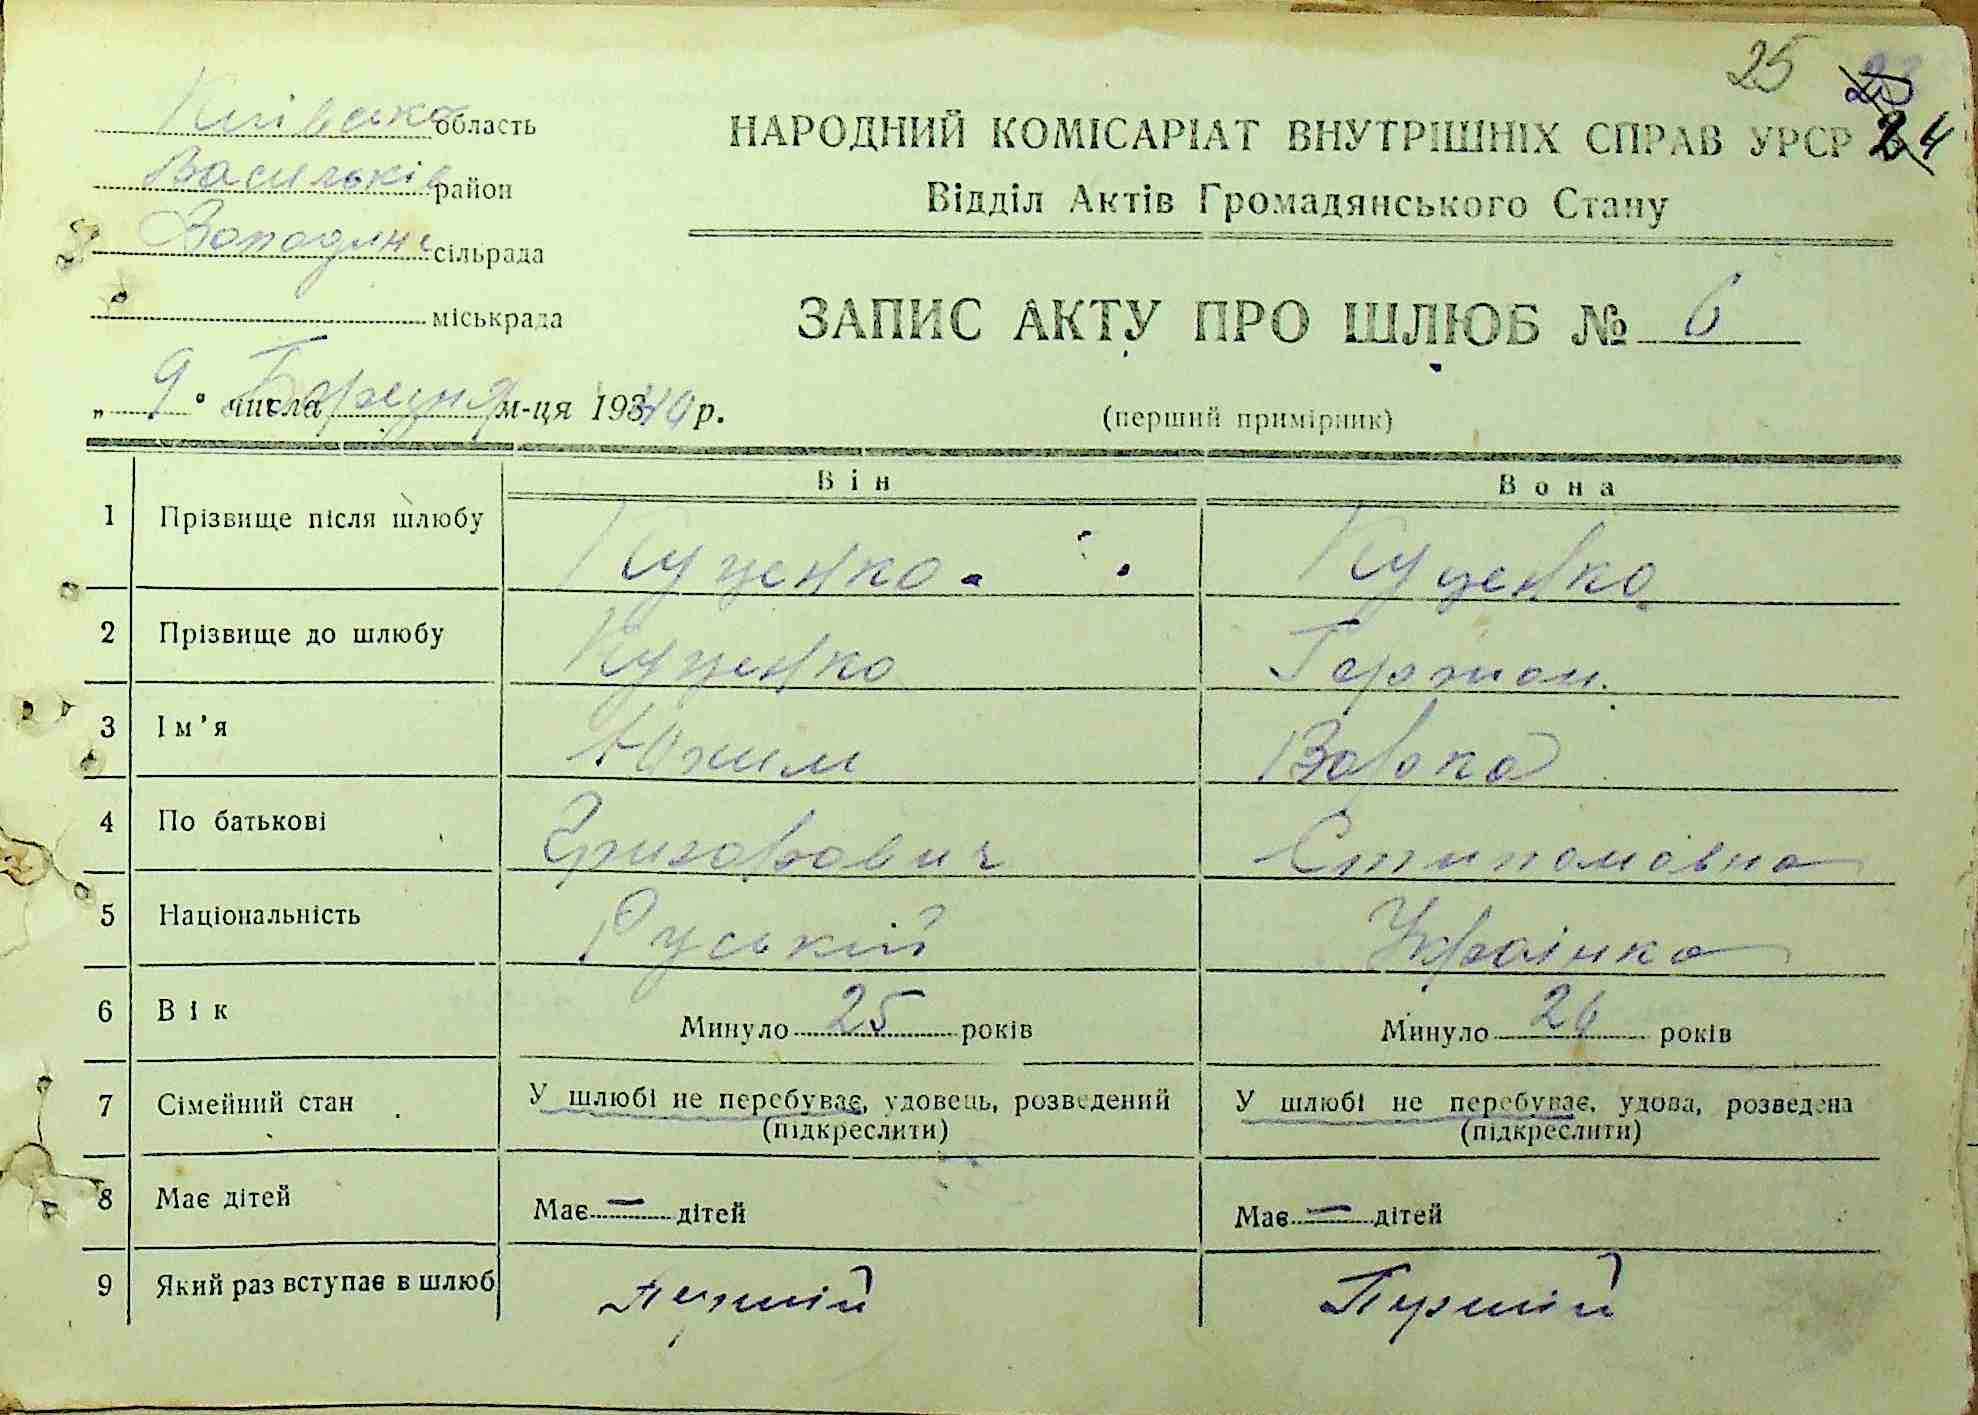 25 23
24
Київська область
Васильків район
сільрада
міськрада
НАРОДНИЙ КОМІСАРІАТ ВНУТРІШНІХ СПРАВ УРСР
Відділ Актів Громадянського Стану
ЗАПИС АКТУ ПРО ШЛЮБ № 6
„ 9 " числа Березня м-ця 1940 р.
(перший примірник)
Він Вона
1 Прізвище після шлюбу Куценко. Куценко
2 Прізвище до шлюбу Куценко
3 Ім'я Юхим Варка
4 По батькові Григорович
5 Національність Руській Украінка
6 Вік Минуло 25 років Минуло 26 років
7 Сімейний стан У шлюбі не перебуває, удовець, розведений У шлюбі не перебуває, удова, розведена
(підкреслити) (підкреслити)
8 Має дітей Має — дітей Має — дітей
9 Який раз вступає в шлюб Перший Перший